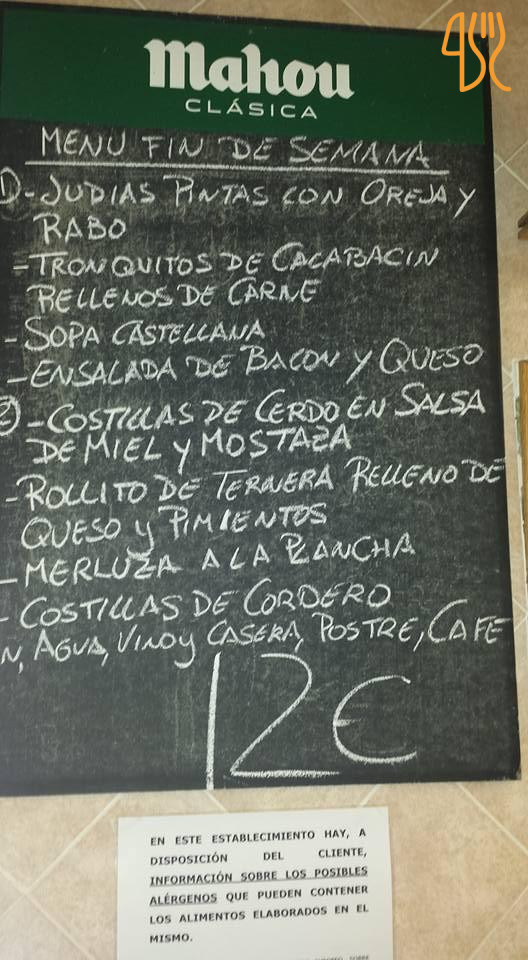 Mahou
CLÁSICA
MENU FIN DE SEMANA
1)-JUDIAS PINTAS CON OREJA Y
RABO
-TRONQUITOS DE CALABACIN
RELLENOS DE CARNE
-SOPA CASTELLANA
-ENSALADA DE BACON Y QUESO
2)-COSTILLAS DE CERDO EN SALSA
DE MIEL Y MOSTAZA
-ROLLITO DE TERNERA RELLENO DE
QUESO Y PIMIENTOS
-MERLUZA A LA PLANCHA
-COSTILLAS DE CORDERO
N, AGUA, VINO Y CASERA, POSTRE, CAFE
12€
EN ESTE ESTABLECIMIENTO HAY, A
DISPOSICIÓN DEL CLIENTE,
INFORMACIÓN SOBRE LOS POSIBLES
ALÉRGENOS QUE PUEDEN CONTENER
LOS ALIMENTOS ELABORADOS EN EL
MISMO.